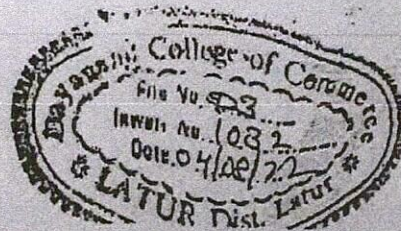 Dayanand College of Commerce
File No. 03
Inward No. 1082
Date. 04/08/22
LATUR Dist. Latur